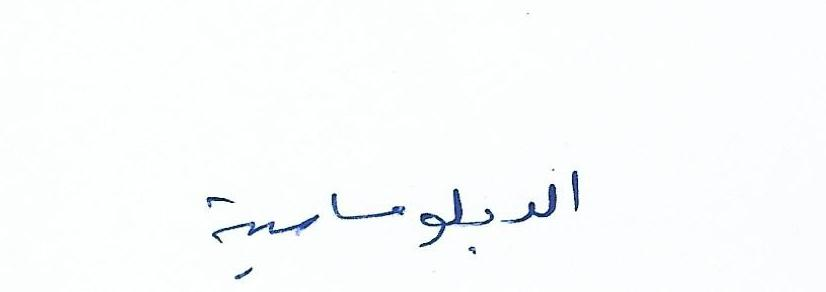 الدبلوماسية